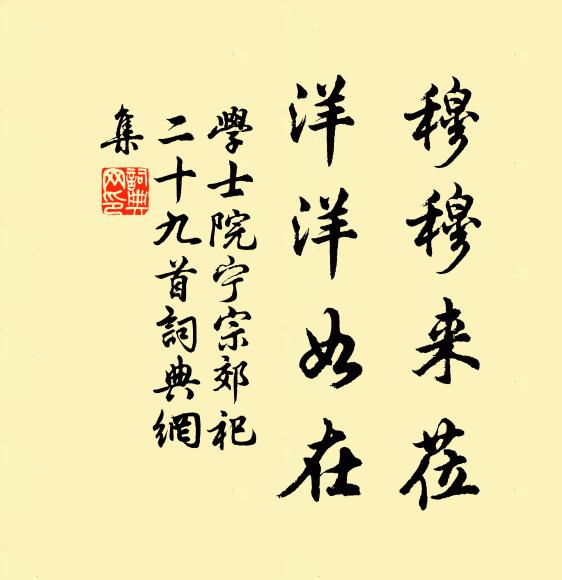 穆穆来莅
洋洋如在
學士院宁宗郊祀
二十九首詞典網
集
詞典网印